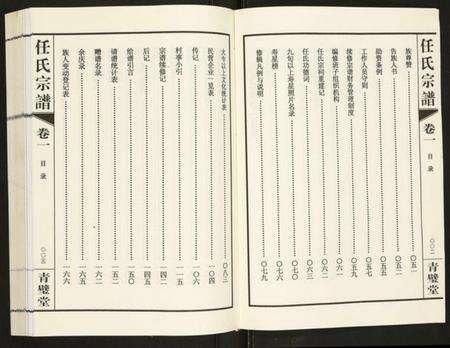 任氏宗譜
卷一
目录
青璧堂
族尊赞 〇五一
告族人书 〇五二
励资条例 〇五五
工作人员守则 〇五七
续修宗谱财务管理制度 〇五九
编修班子组织机构 〇六一
任氏宗祠重建记 〇六二
任氏功德词 〇六三
九旬以上寿星照片名录 〇七〇
寿星榜 〇七七
修辑凡例与说明 〇七九
大专以上文化统计表 〇八三
民营企业一览表 一〇四
传记 一〇六
村事小引 一一五
宗谱续修记 一四四
后记 一四五
绘谱引言 一五〇
请谱统计表 一五二
赠谱名录 一六二
余庆录 一六五
族人变动登记表 一六六
任氏宗譜
卷一
目录
青璧堂